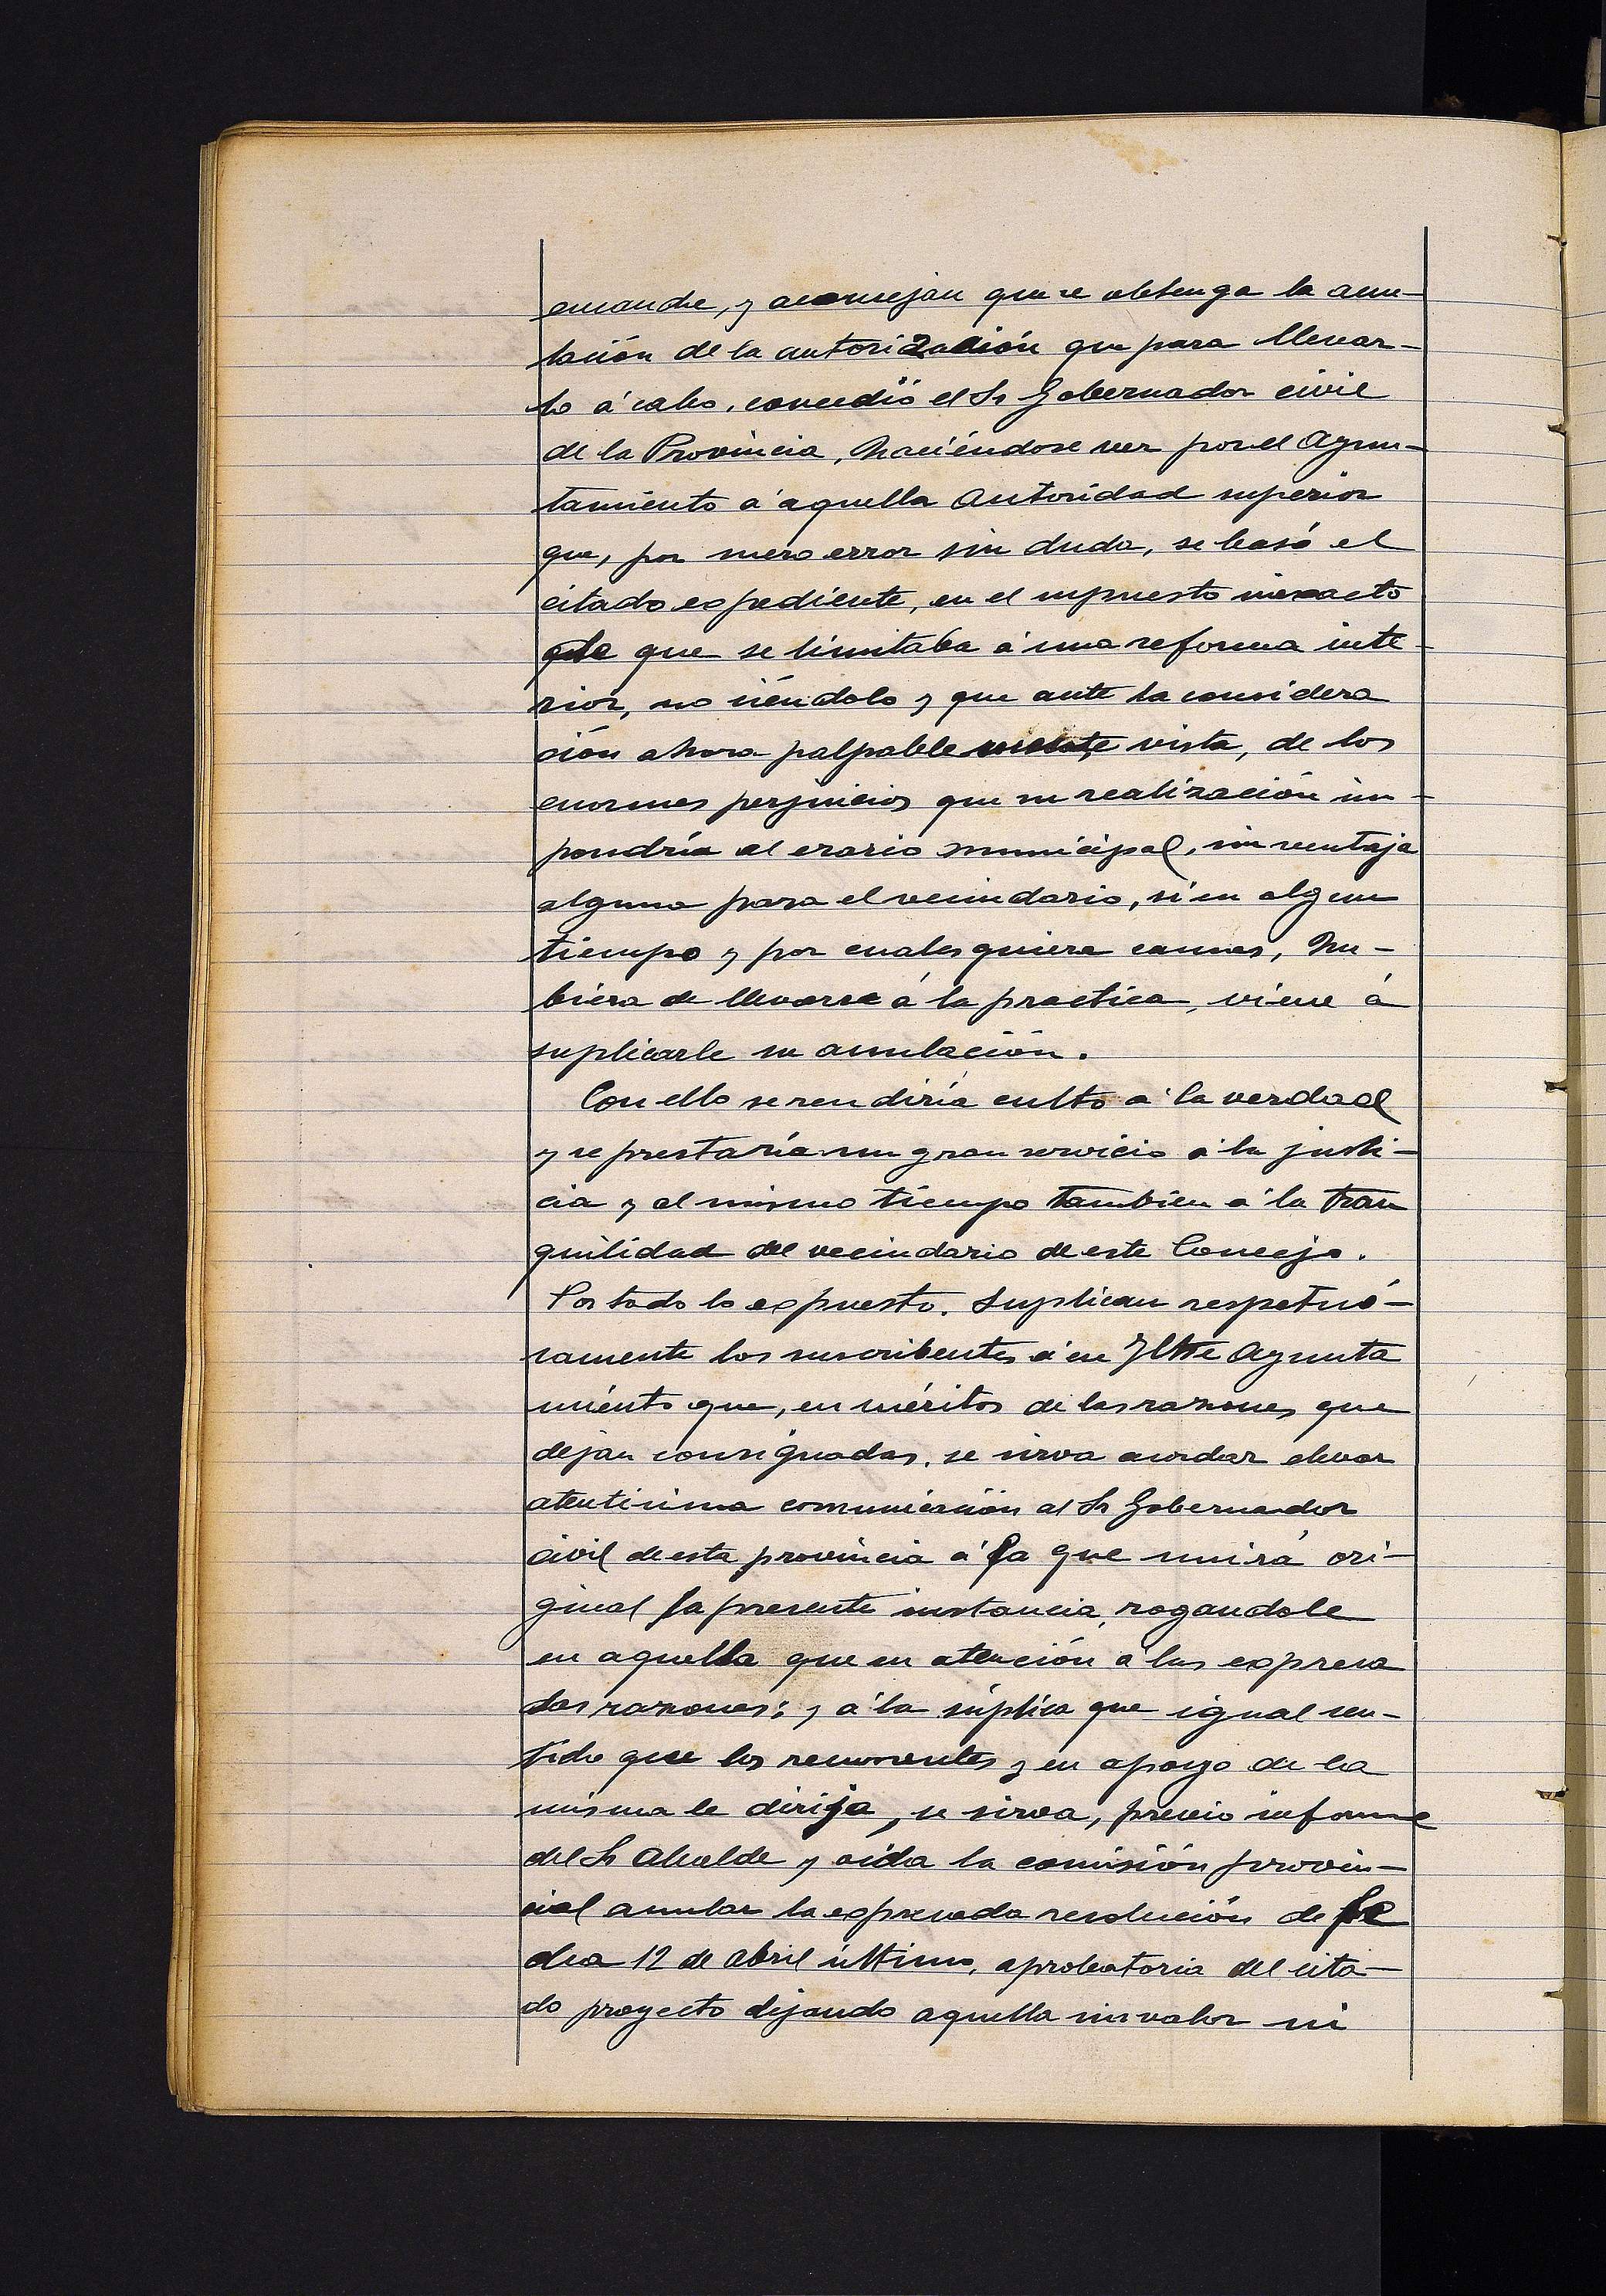 ensanche, y aconsejan que se obtenga la anu-
lación de la autorización que para llevar-
lo á cabo, concedió el Sr Gobernador civil
de la Provincia, haciéndose ver por el Ayun-
tamiento á aquella Autoridad superior
que, por mero error sin duda, se basó el
citado expediente, en el supuesto inexacto
de que se limitaba á una reforma inte-
rior, no siéndolo y que ante la considera
ción ahora palpablemente vista, de los
enormes perjuicios que su realización im-
pondría al erario municipal, sin ventaja
alguna para el vecindario, si en algun
tiempo y por cualesquiera causas, hu-
biera de llevarse á la practica, viene á
suplicarle su anulación.
Con ello se rendiría culto á la verdad
y se prestaría un gran servicio á la justi-
cia y al mismo tiempo tambien á la tran
quilidad del vecindario de este Concejo.
Por todo lo expuesto. Suplican respetuó-
samente los suscribentes á ese Iltre Ayunta
miento que, en méritos de las razones que
dejan consignadas, se sirva acordar elevar
atentisima comunicación al Sr Gobernador
civil de esta provincia á la que unirá ori-
ginal la presente instancia, rogandole
en aquella que en atención á las expresa
das razones; y á la súplica que igual sen-
tido que los recurrentes y en apoyo de la
misma le dirija, se sirva, previo informe
del Sr Alcalde y oida la comisión provin-
cial anular la expresada resolución de fe
dia 12 de Abril último, aprobatoria del cita-
do proyecto dejando aquella sin valor ni